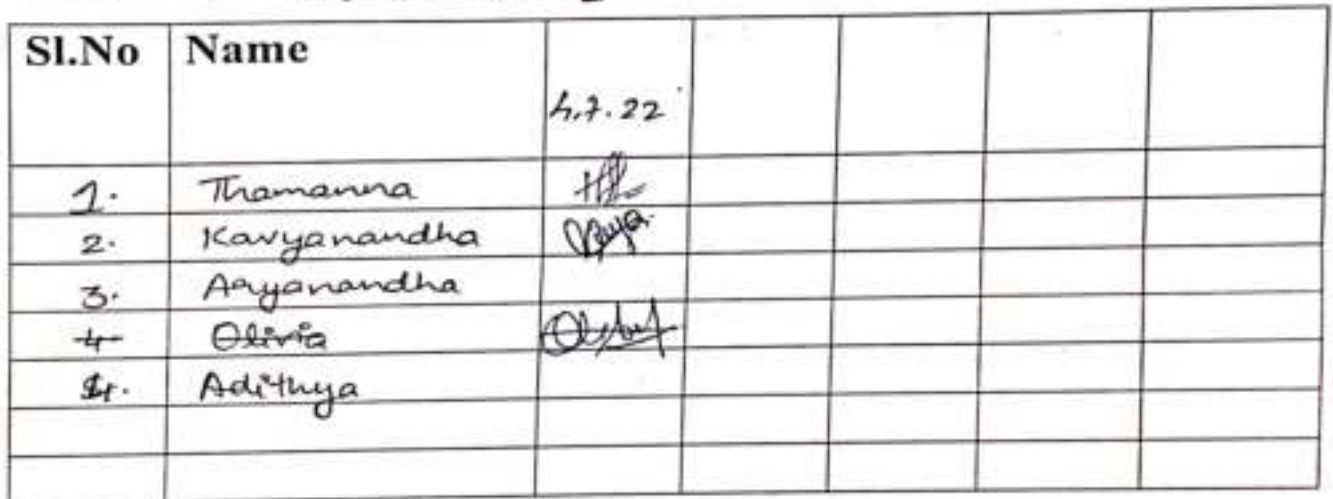 Sl.No Name
4.7.22
1. Thamanna
2. Kavyanandha
3. Aayanandha
4 Olivia
4. Adithya